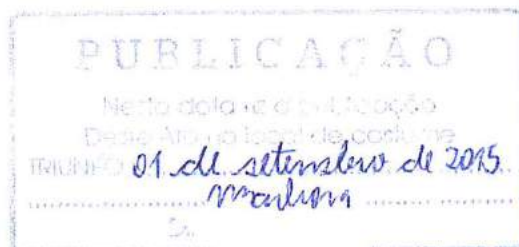 PUBLICAÇÃO
Nesta data a publicação
Deste Ato no local de costume
TRIUNFO 01 de setembro de 2015